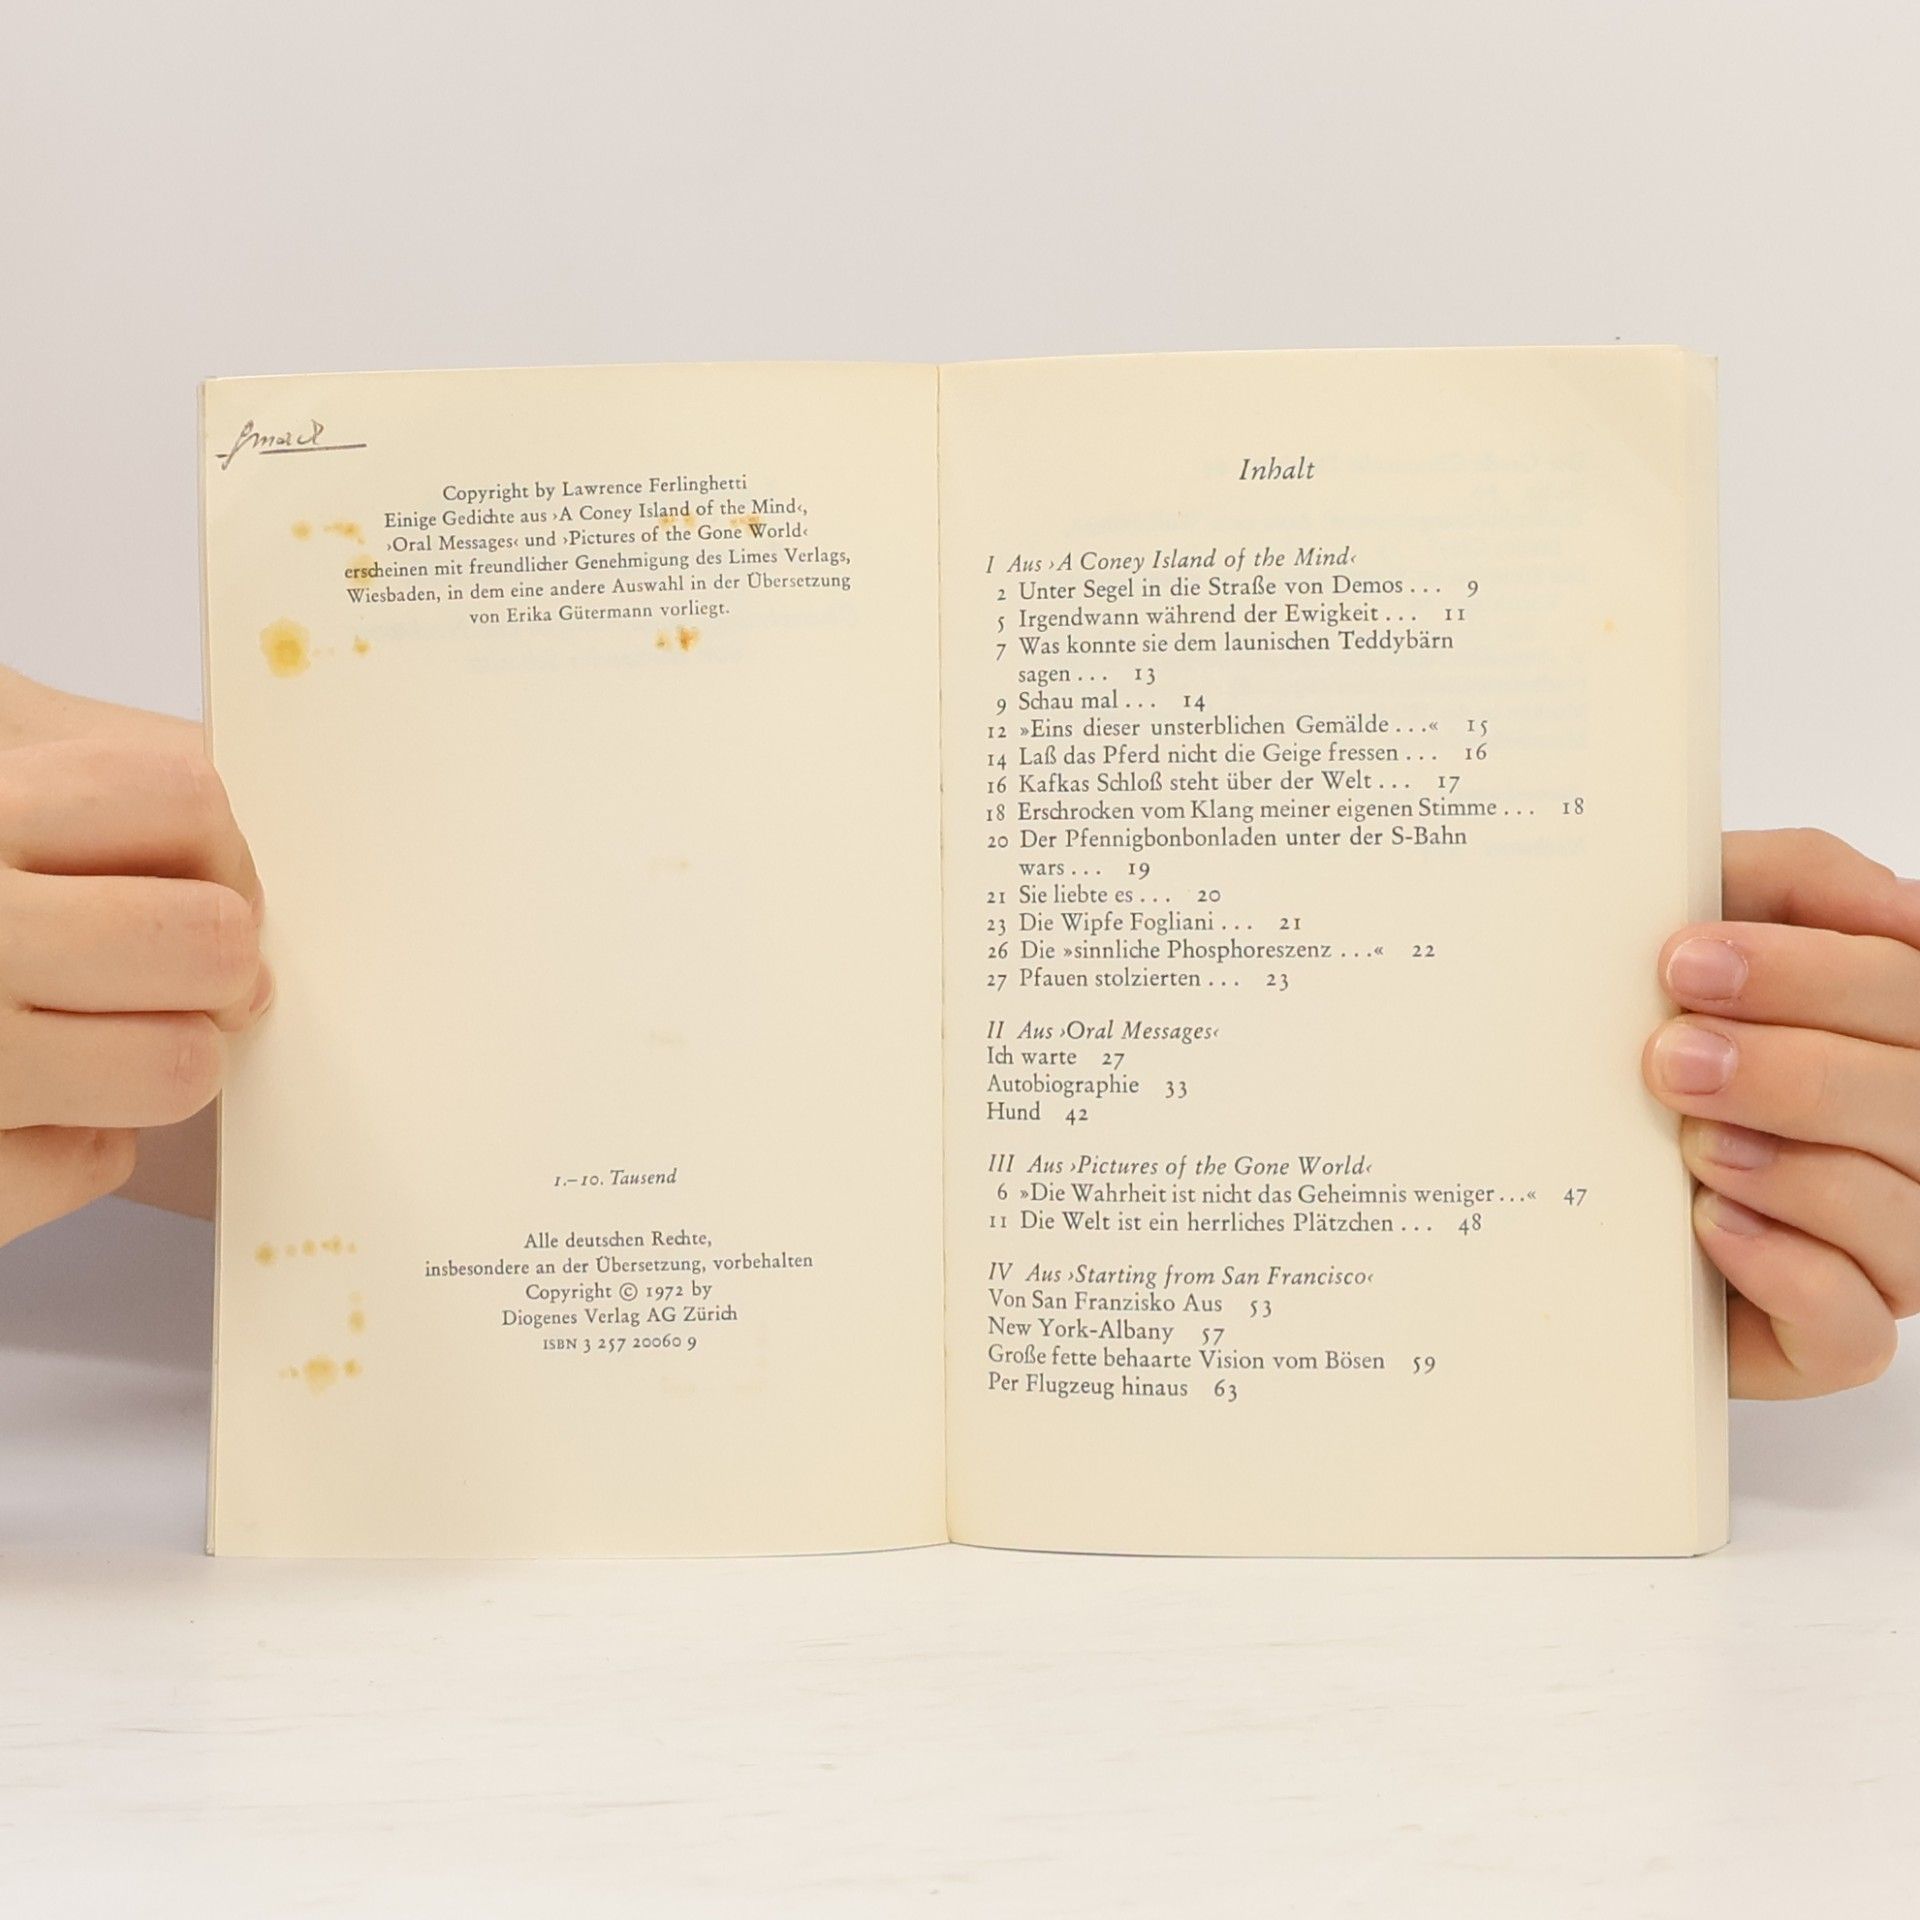 Copyright by Lawrence Ferlinghetti
Einige Gedichte aus ›A Coney Island of the Mind‹,
›Oral Messages‹ und ›Pictures of the Gone World‹
erscheinen mit freundlicher Genehmigung des Limes Verlags,
Wiesbaden, in dem eine andere Auswahl in der Übersetzung
von Erika Gütermann vorliegt.
1.–10. Tausend
Alle deutschen Rechte,
insbesondere an der Übersetzung, vorbehalten
Copyright © 1972 by
Diogenes Verlag AG Zürich
ISBN 3 257 20060 9
Inhalt
I Aus ›A Coney Island of the Mind‹
2 Unter Segel in die Straße von Demos . . . 9
5 Irgendwann während der Ewigkeit . . . 11
7 Was konnte sie dem launischen Teddybärn
sagen . . . 13
9 Schau mal . . . 14
12 »Eins dieser unsterblichen Gemälde . . .« 15
14 Laß das Pferd nicht die Geige fressen . . . 16
16 Kafkas Schloß steht über der Welt . . . 17
18 Erschrocken vom Klang meiner eigenen Stimme . . . 18
20 Der Pfennigbonbonladen unter der S-Bahn
wars . . . 19
21 Sie liebte es . . . 20
23 Die Wipfe Fogliani . . . 21
26 Die »sinnliche Phosphoreszenz . . .« 22
27 Pfauen stolzierten . . . 23
II Aus ›Oral Messages‹
Ich warte 27
Autobiographie 33
Hund 42
III Aus ›Pictures of the Gone World‹
6 »Die Wahrheit ist nicht das Geheimnis weniger . . .« 47
11 Die Welt ist ein herrliches Plätzchen . . . 48
IV Aus ›Starting from San Francisco‹
Von San Franzisko Aus 53
New York-Albany 57
Große fette behaarte Vision vom Bösen 59
Per Flugzeug hinaus 63